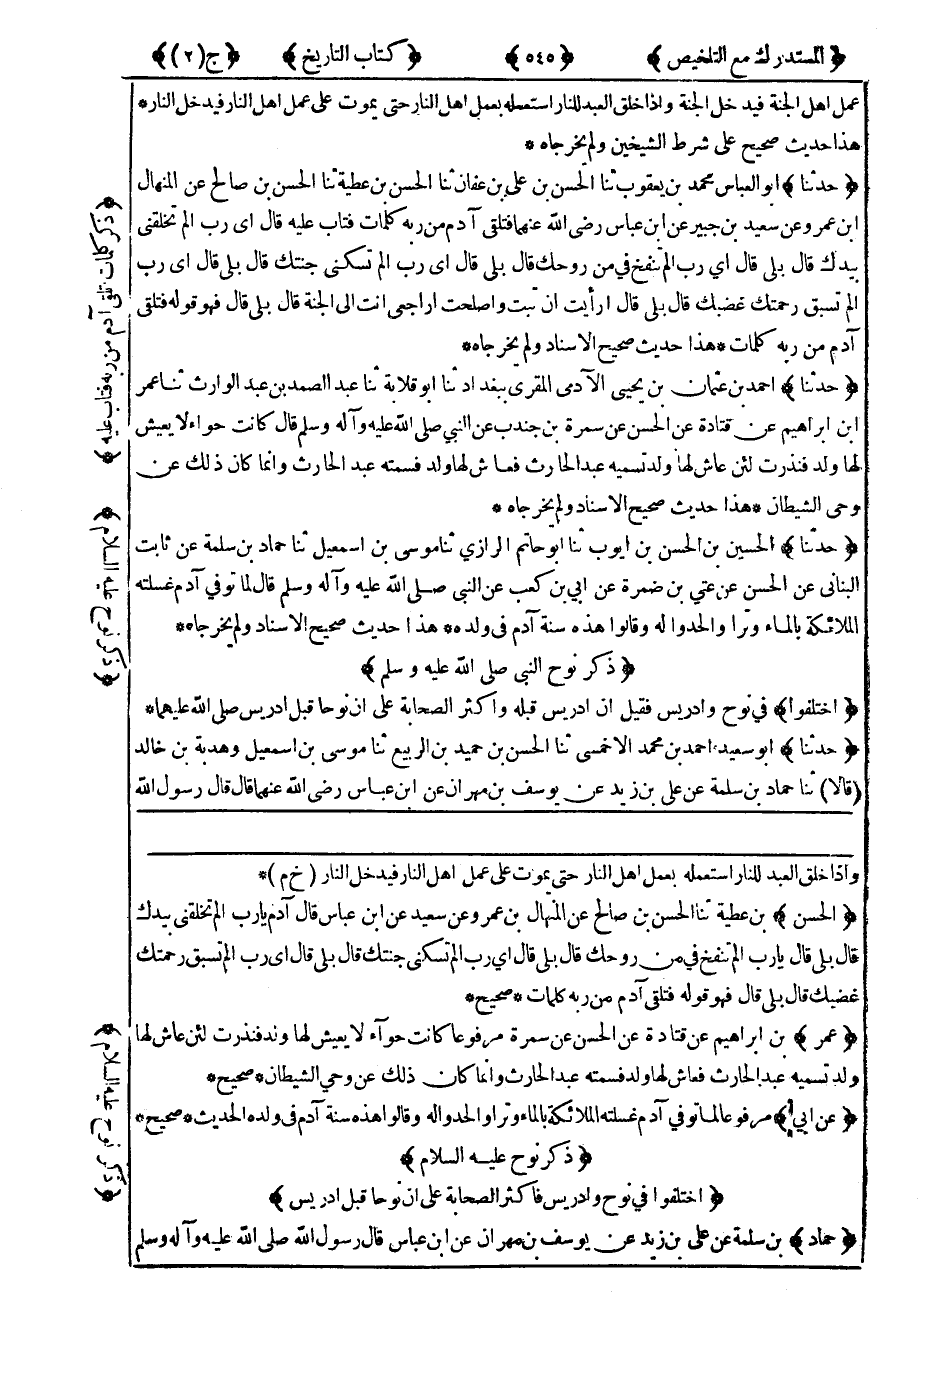 ﴿ المستدرك مع التلخيص ﴾ ﴿ ٥٤٥ ﴾ ﴿ كتاب التاريخ ﴾ ﴿ ج (٢) ﴾
عمل اهل الجنة فيدخل الجنة واذا خلق العبد للنار استعمله بعمل اهل النار حتى يموت على عمل اهل النار فيدخل النار *
هذا حديث صحيح على شرط الشيخين ولم يخرجاه *
﴿ حدثنا ﴾ ابو العباس محمد بن يعقوب ثنا الحسن بن على بن عفان ثنا الحسن بن عطية ثنا الحسن بن صالح عن المنهال
ابن عمرو عن سعيد بن جبير عن ابن عباس رضى الله عنهما فتلقى آدم من ربه كلمات فتاب عليه قال اى رب الم تخلقنى
بيدك قال بلى قال اي رب الم تنفخ في من روحك قال بلى قال اى رب الم تسكنى جنتك قال بلى قال اى رب
الم تسبق رحمتك غضبك قال بلى قال ارأيت ان تبت واصلحت اراجعى انت الى الجنة قال بلى قال فهو قوله فتلقى
آدم من ربه كلمات * هذا حديث صحيح الاسناد ولم يخرجاه *
﴿ حدثنا ﴾ احمد بن عثمان بن يحيى الآدمى المقرى ببغداد ثنا ابو قلابة ثنا عبد الصمد بن عبد الوارث ثنا عمر
ابن ابراهيم عن قتادة عن الحسن عن سمرة بن جندب عن النبي صلى الله عليه وآله وسلم قال كانت حواء لا يعيش
لها ولد فنذرت لئن عاش لها ولد تسميه عبد الحارث فعاش لها ولد فسمته عبد الحارث وانما كان ذلك عن
وحى الشيطان * هذا حديث صحيح الاسناد ولم يخرجاه *
﴿ حدثنا ﴾ الحسين بن الحسن بن ايوب ثنا ابو حاتم الرازي ثنا موسى بن اسمعيل ثنا حماد بن سلمة عن ثابت
البنانى عن الحسن عن عتي بن ضمرة عن ابي بن كعب عن النبى صلى الله عليه وآله وسلم قال لما توفي آدم غسلته
الملائكة بالماء وترا والحدوا له وقالوا هذه سنة آدم فى ولده * هذا حديث صحيح الاسناد ولم يخرجاه *
﴿ ذكر نوح النبي صلى الله عليه وسلم ﴾
﴿ اختلفوا ﴾ في نوح وادريس فقيل ان ادريس قبله واكثر الصحابة على ان نوحا قبل ادريس صلى الله عليهما *
﴿ حدثنا ﴾ ابو سعيد احمد بن محمد الاخمسى ثنا الحسن بن حميد بن الربيع ثنا موسى بن اسمعيل وهدبة بن خالد
(قالا) ثنا حماد بن سلمة عن على بن زيد عن يوسف بن مهران عن ابن عباس رضى الله عنهما قال قال رسول الله
واذا خلق العبد للنار استعمله بعمل اهل النار حتى يموت على عمل اهل النار فيدخل النار ( خ م ) *
﴿ الحسن ﴾ بن عطية ثنا الحسن بن صالح عن المنهال بن عمرو عن سعيد عن ابن عباس قال آدم يارب الم تخلقنى بيدك
قال بلى قال يارب الم تنفخ في من روحك قال بلى قال اي رب الم تسكنى جنتك قال بلى قال اى رب الم تسبق رحمتك
غضبك قال بلى قال فهو قوله فتلقى آدم من ربه كلمات * صحيح *
﴿ عمر ﴾ بن ابراهيم عن قتادة عن الحسن عن سمرة مرفوعا كانت حوآء لا يعيش لها ولد فنذرت لئن عاش لها
ولد تسميه عبد الحارث فعاش لها ولد فسمته عبد الحارث وانما كان ذلك عن وحي الشيطان * صحيح *
﴿ عن ابي ﴾ مرفوعا لما توفي آدم غسلته الملائكة بالماء وترا والحدوا له وقالوا هذه سنة آدم فى ولده الحديث * صحيح *
﴿ ذكر نوح عليه السلام ﴾
﴿ اختلفوا في نوح وادريس فاكثر الصحابة على ان نوحا قبل ادريس ﴾
﴿ حماد ﴾ بن سلمة عن على بن زيد عن يوسف بن مهران عن ابن عباس قال رسول الله صلى الله عليه وآله وسلم
﴿ ذكر كلمات تلقى آدم من ربه فتاب عليه ﴾
﴿ ذكر نوح عليه السلام ﴾
﴿ ذكر نوح عليه السلام ﴾